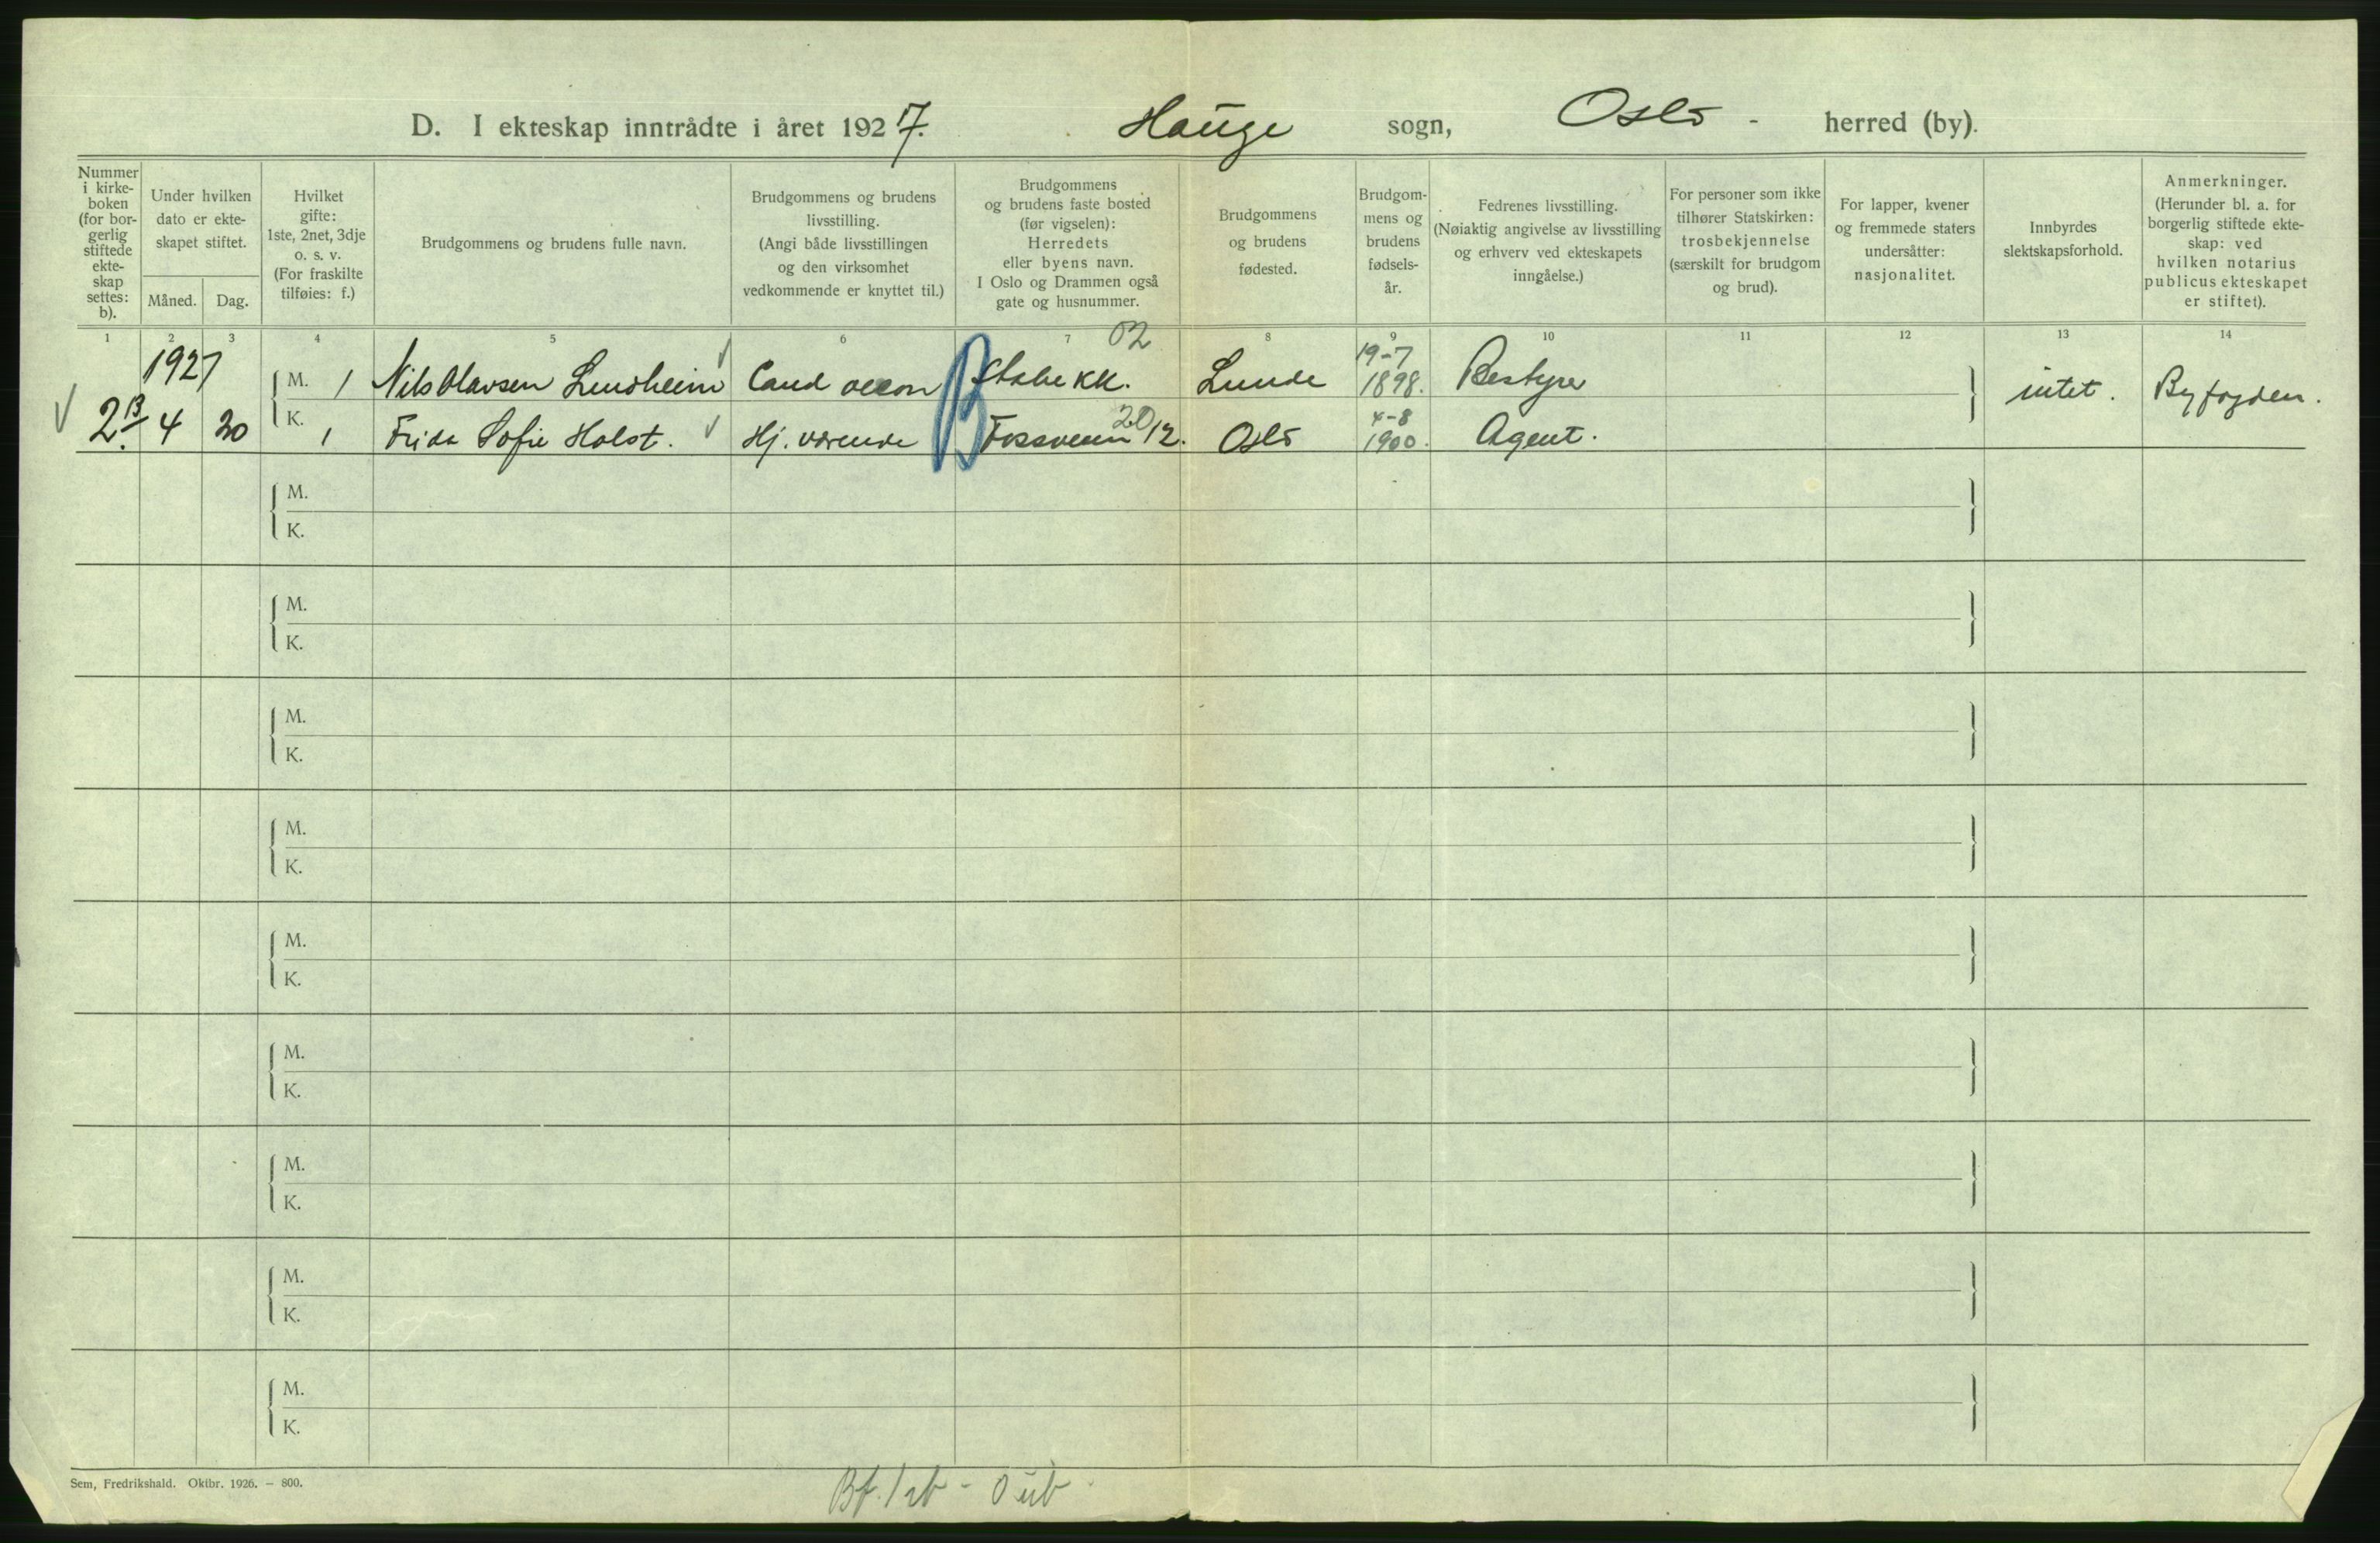 D. I ekteskap inntrådte i året 1927. Hauge sogn, Oslo - herred (by).
Nummer
i kirke-
boken
(for bor-
gerlig
stiftede
ekte-
skap
settes:
b).
Under hvilken
dato er ekte-
skapet stiftet.
Måned. Dag.
Hvilket
gifte:
1ste, 2net, 3dje
o. s. v.
(For fraskilte
tilføies: f.)
Brudgommens og brudens fulle navn.
Brudgommens og brudens
livsstilling.
(Angi både livsstillingen
og den virksomhet
vedkommende er knyttet til.)
Brudgommens
og brudens faste bosted
(før vigselen):
Herredets
eller byens navn.
I Oslo og Drammen også
gate og husnummer.
Brudgommens
og brudens
fødested.
Brudgom-
mens og
brudens
fødsels-
år.
Fedrenes livsstilling.
(Nøiaktig angivelse av livsstilling
og erhverv ved ekteskapets
inngåelse.)
For personer som ikke
tilhører Statskirken:
trosbekjennelse
(særskilt for brudgom
og brud).
For lapper, kvener
og fremmede staters
undersåtter:
nasjonalitet.
Innbyrdes
slektskapsforhold.
Anmerkninger.
(Herunder bl. a. for
borgerlig stiftede ekte-
skap: ved
hvilken notarius
publicus ekteskapet
er stiftet).
1 2 3 4 5 6 7 8 9 10 11 12 13 14
02
1927 19-7
M. 1 Nils Olavsen Cand oecon B Stabekk. Lunde 1898. Bestyrer intet. Byfogden.
2. B 4 30 20 4-8
K. 1 Frida Sofie Holst. Hj. værende 12. Oslo 1900. Agent.
M.
K.
M.
K.
M.
K.
M.
K.
M.
K.
M.
K.
M.
K.
M.
K.
M.
K.
Sem, Fredrikshald. Oktbr. 1926. — 800.